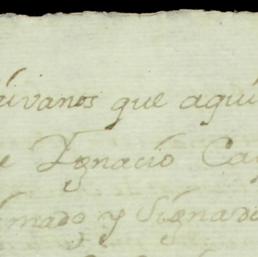 ivanos que aqui
e Ygnacio Ca
mado y Signado